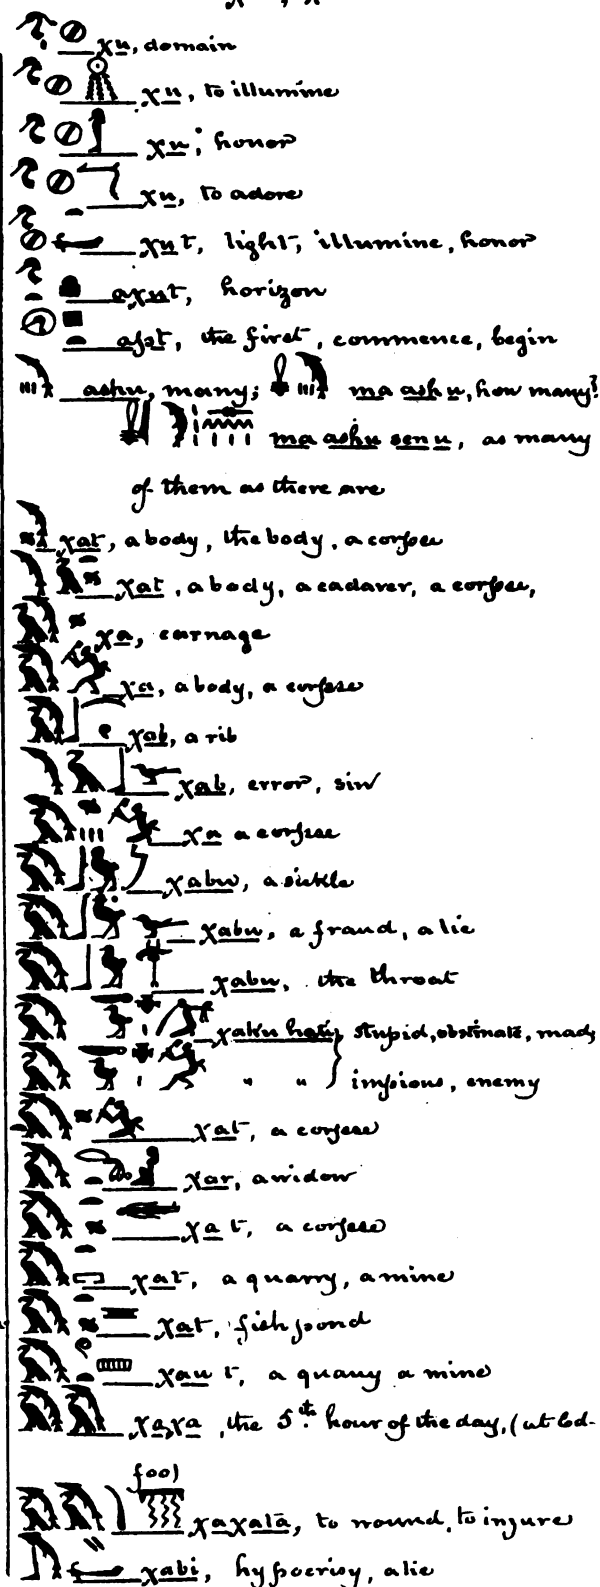 χu, domain
χu, to illumine
χu, honor
χu, to adore
χut, light, illumine, honor
aχut, horizon
apt, the first, commence, begin
ashu, many; ma ashu, how many?
ma ashu senu, as many
of them as there are
χat, a body, the body, a corpse
χat, a body, a cadaver, a corpse,
χa, carnage
χa, a body, a corpse
χab, a rib
χab, error, sin
χa a corpse
χabu, a sickle
χabu, a fraud, a lie
χabu, the throat
χaku hatu } stupid, obstinate, mad,
" " } impious, enemy
χat, a corpse
χar, a widow
χat, a corpse
χat, a quarry, a mine
χat, fish pond
χau t, a quarry a mine
χaχa, the 5th. hour of the day,
foo)
χaχatā, to wound, to injure
χabi, hypocrisy, a lie